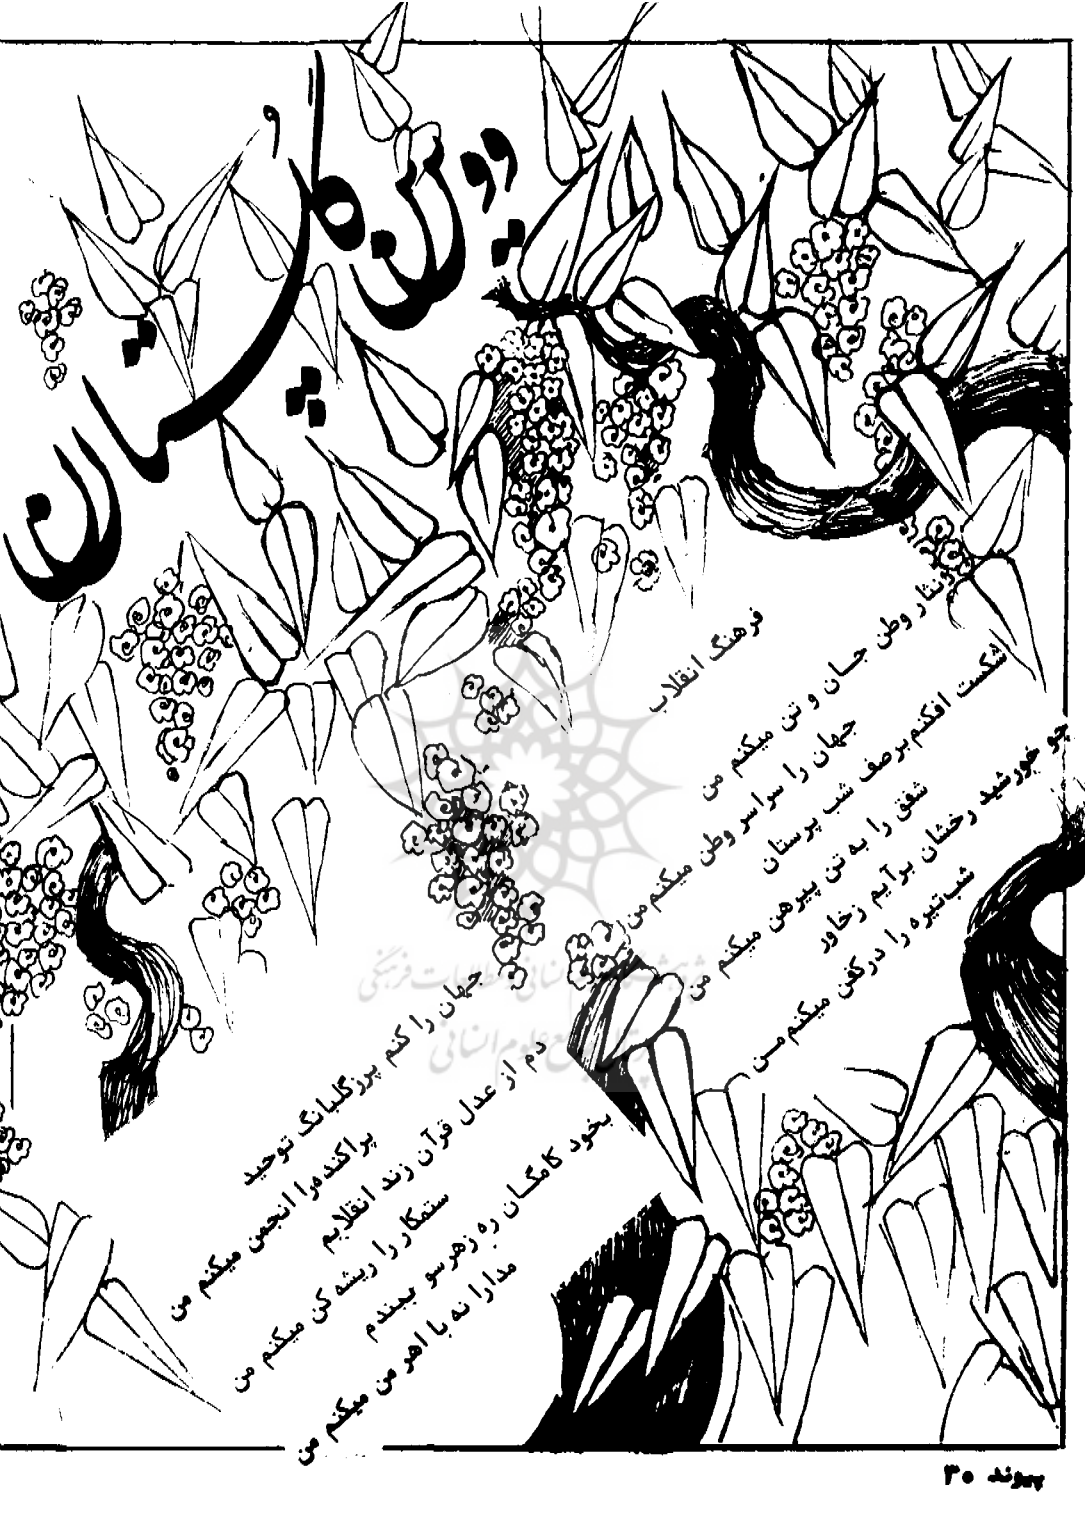 فرهنگ انقلاب
نثار وطن جـان و تن میکنم من
جهان را سراسر وطن میکنم من
شکست افکنم برصف شب پرستان
شفق را به تن پیرهن میکنم من
چو خورشید رخشان برآیم زخاور
شب‌تیره را درکفن میکنم مـن
جهان را کنم پرزگلبانگ توحید
پراکنده‌را انجمن میکنم من
دم از عدل قرآن زند انقلابم
ستمکار را ریشه کن میکنم من
بخود کامگـان ره زهرسو ببندم
مدارا نه با اهر من میکنم من
پژوهشگاه علوم انسانی و مطالعات فرهنگی
پرتال جامع علوم انسانی
پیوند ۳۰